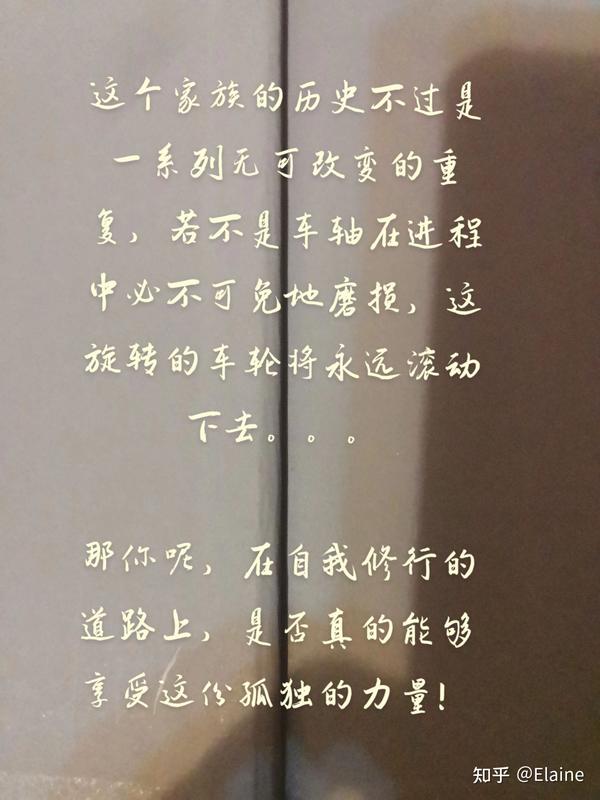 这个家族的历史不过是
一系列无可改变的重
复，若不是车轴在进程
中必不可免地磨损，这
旋转的车轮将永远滚动
下去。。。
那你呢，在自我修行的
道路上，是否真的能够
享受这份孤独的力量！
知乎 @Elaine